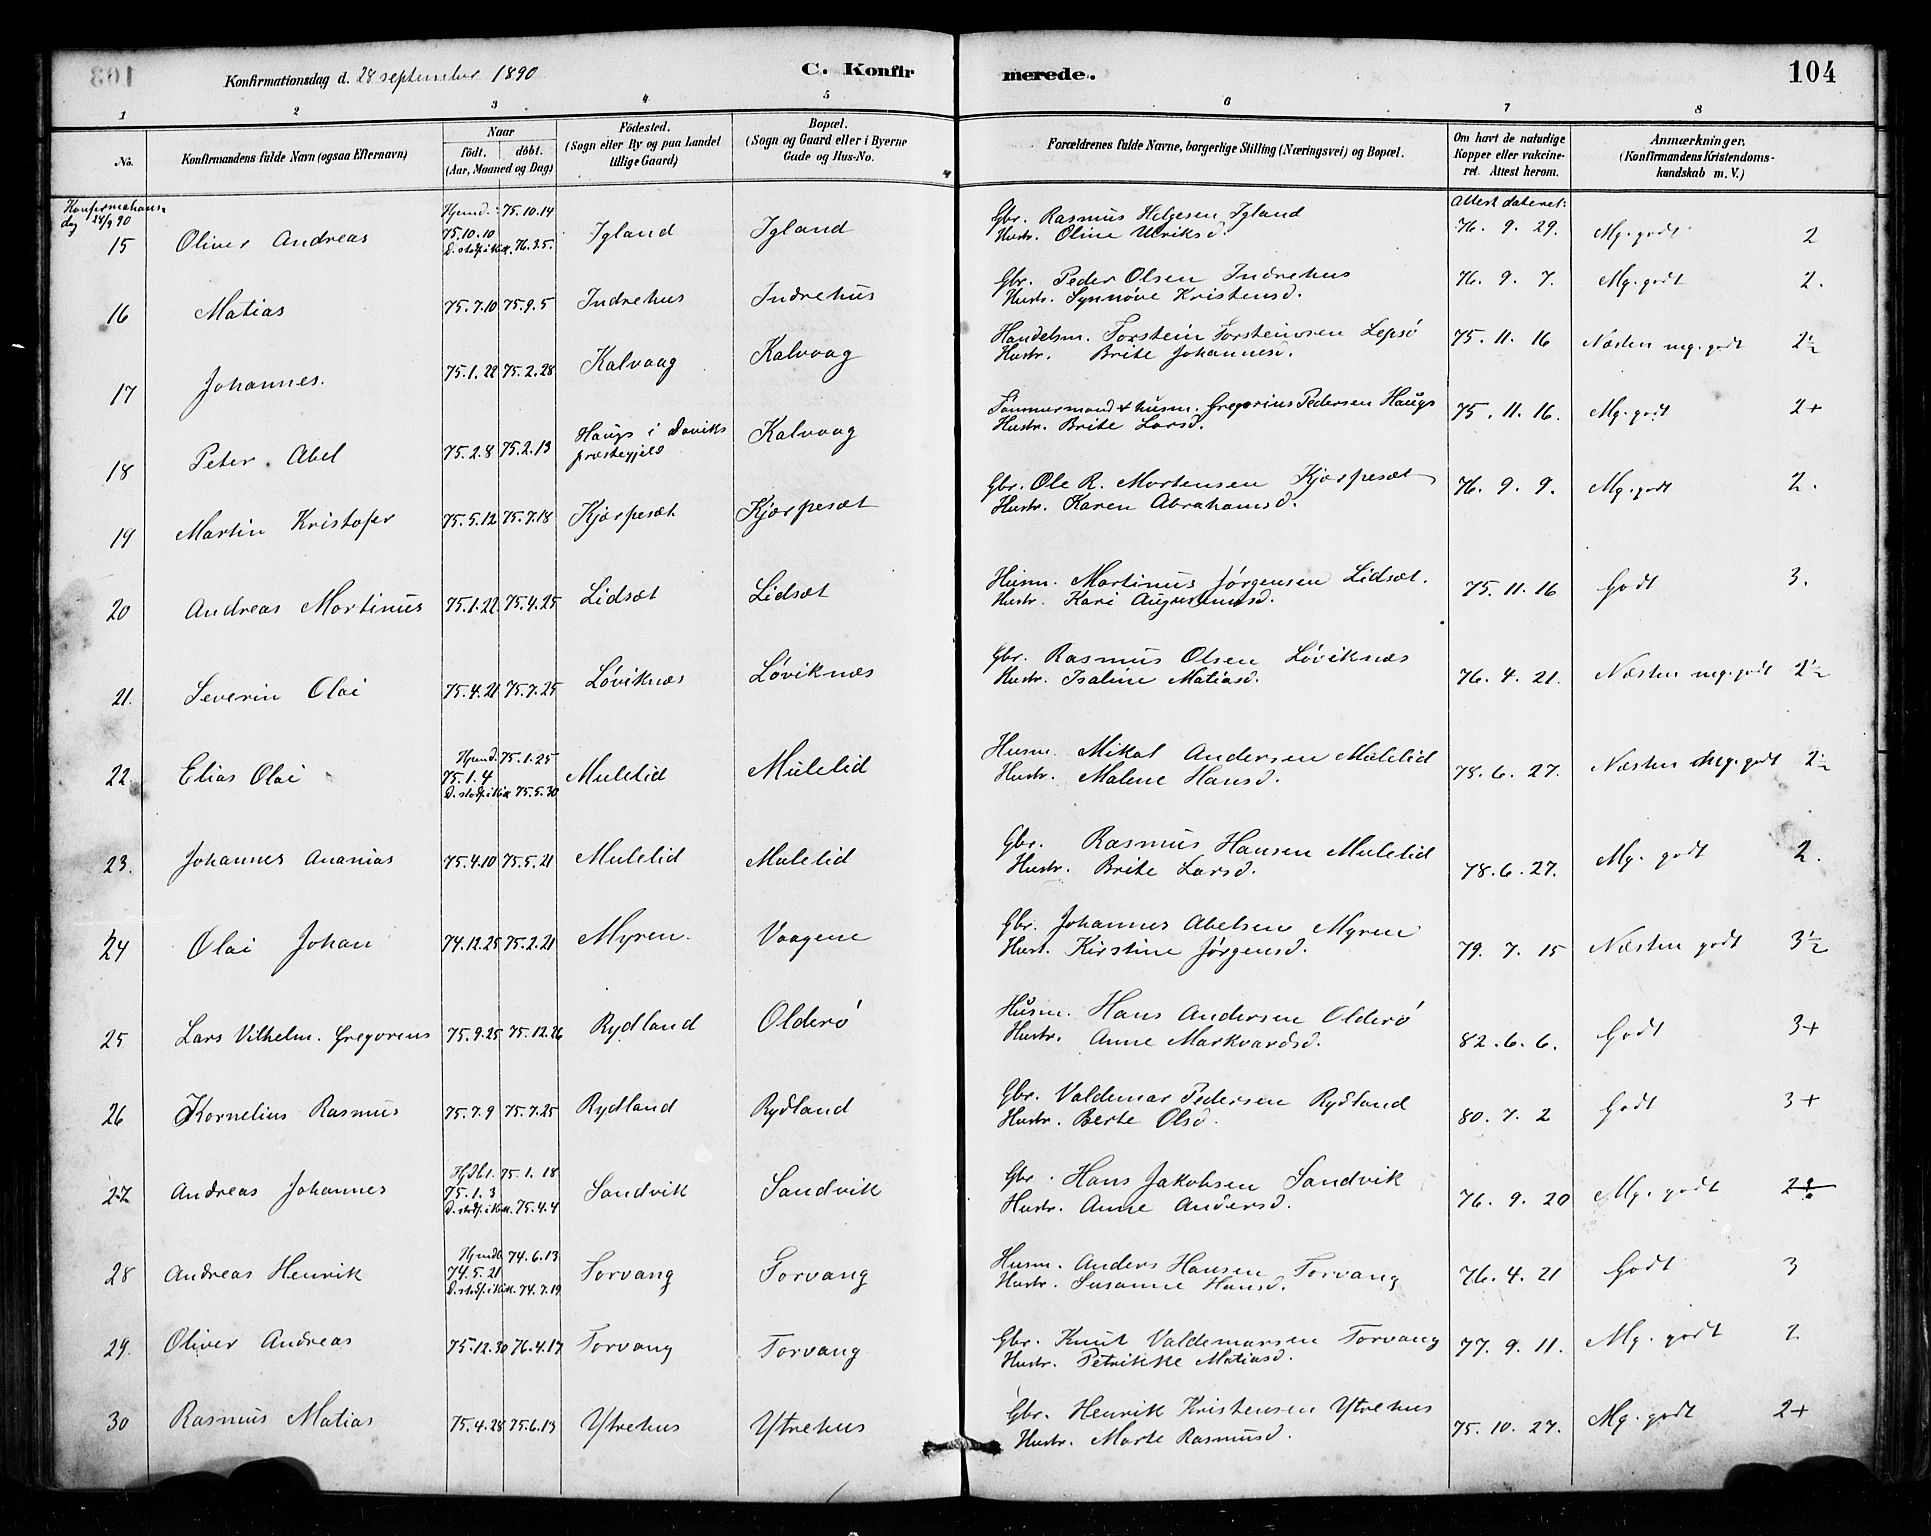 103
Konfirmationsdag d. 28 september 1890
C. Konfir
merede.
104
1 2 3 4 5 6 7 8
No.
Konfirmandens fulde Navn (ogsaa Efternavn)
Naar
födt. döbt.
(Aar, Maaned og Dag)
Födested.
(Sogn eller By og paa Landet
tillige Gaard)
Bopæl.
(Sogn og Gaard eller i Byerne
Gade og Hus-No.
Forældrenes fulde Navne, borgerlige Stilling (Næringsvei) og Bopæl.
Om havt de naturlige
Kopper eller vakcine-
ret. Attest herom.
Anmærkninger.
(Konfirmandens Kristendoms-
kundskab m. V.)
Konfirmations-
dag 28/9 90
Attest dateret:
15 Oliver Andreas 75.10.10 Hjemd. 75.10.14 D. stadf. i Kirk. 76.3.5. Igland Igland Gbr. Rasmus Helgesen Igland 76. 9. 29. Mg. godt 2
Hustr. Oline Ulriksd.
16 Matias 75.7.10 75.9.5 Indrehus Indrehus Gbr. Peder Olsen Indrehus 76. 9. 7. Mg. godt 2.
Hustr. Synnøve Kristensd.
17 Johannes. 75.1.22 75.2.28 Kalvaag Kalvaag Handelsm. Torstein Torsteinsen Lepsö 75. 11. 16 Næsten mg. godt 2½
Hustr. Brite Johannesd.
18 Peter Abel 75.2.8 75.2.13 Haugs i Daviks præstegjeld Kalvaag Tømmermand & husm. Gregorius Pedersen Haugs 75. 11. 16. Mg. godt 2+
Hustr. Brite Larsd.
19 Martin Kristofer 75.5.12 75.7.18 Kjærpesæt Kjærpesæt Gbr. Ole R. Mortensen Kjærpesæt 76. 9. 9. Mg. godt 2.
Hustr. Karen Abrahamsd.
20 Andreas Martinus 75.1.22 75.4.25 Lidsæt Lidsæt Husm. Martinus Jørgensen Lidsæt. 75. 11. 16 Godt 3.
Hustr. Kari Augustinusd.
21. Severin Olai 75.4.21 75.7.25 Løviknæs Løviknæs Gbr. Rasmus Olsen Løviknæs 76. 4. 21. Næsten mg. godt 2½
Hustr. Isaline Matiasd.
22 Elias Olai 75.1.4 Hjemd. 75.1.25 D. stadf. i Kirk 75.5.30 Mulelid Mulelid Husm. Mikal Andersen Mulelid 78. 6. 27. Næsten Mg. godt 2½
Hustr. Malene Hansd.
23. Johannes Ananias 75.4.10 75.5.21 Mulelid Mulelid Gbr. Rasmus Hansen Mulelid 78. 6. 27. Mg. godt 2.
Hustr. Brite Larsd.
24 Olai Johan 74.12.25 75.2.21 Myren. Vaagene Gbr. Johannes Abelsen Myren 79. 7. 15 Næsten godt 3½
Hust. Kirstine Jørgensd.
25 Lars Vilhelm. Gregorius 75.9.25 75.12.26 Rydland Olderø Husm. Hans Andersen Olderø 82. 6. 6. Godt 3+
Hustr. Anne Markvardsd.
26 Kornelius Rasmus 75.7.9 75.7.25 Rydland Rydland Gbr. Valdemar Pedersen Rydland 80. 7. 2 Godt 3+
Hustr. Berte Olsd.
27 Andreas Johannes 75.1.3 Hjdbt. 75.1.18 D. stadf. i Kirk. 75.4.4 Sandvik Sandvik Gbr. Hans Jakobsen Sandvik 76. 9. 20 Mg. godt 2
Hustr. Anne Andersd.
28 Andreas Henrik 74.5.21 Hjemdb. 74.6.13 D. stadf. i Kirk. 74.7.19 Torvang Torvang Husm. Anders Hansen Torvang 76. 4. 21 Godt 3
Hustr. Susanne Hansd.
29. Oliver Andreas 75.12.30 76.4.17 Torvang Torvang Gbr. Knut Valdemarsen Torvang 77. 9. 11. Mg. godt 2
Hustr. Petrikke Matiasd.
30 Rasmus Matias 75.4.28 75.6.13 Ytrehus Ytrehus Gbr. Henrik Kristensen Ytrehus 75. 10. 27. Mg. godt 2+
Hustr. Marte Rasmusd.